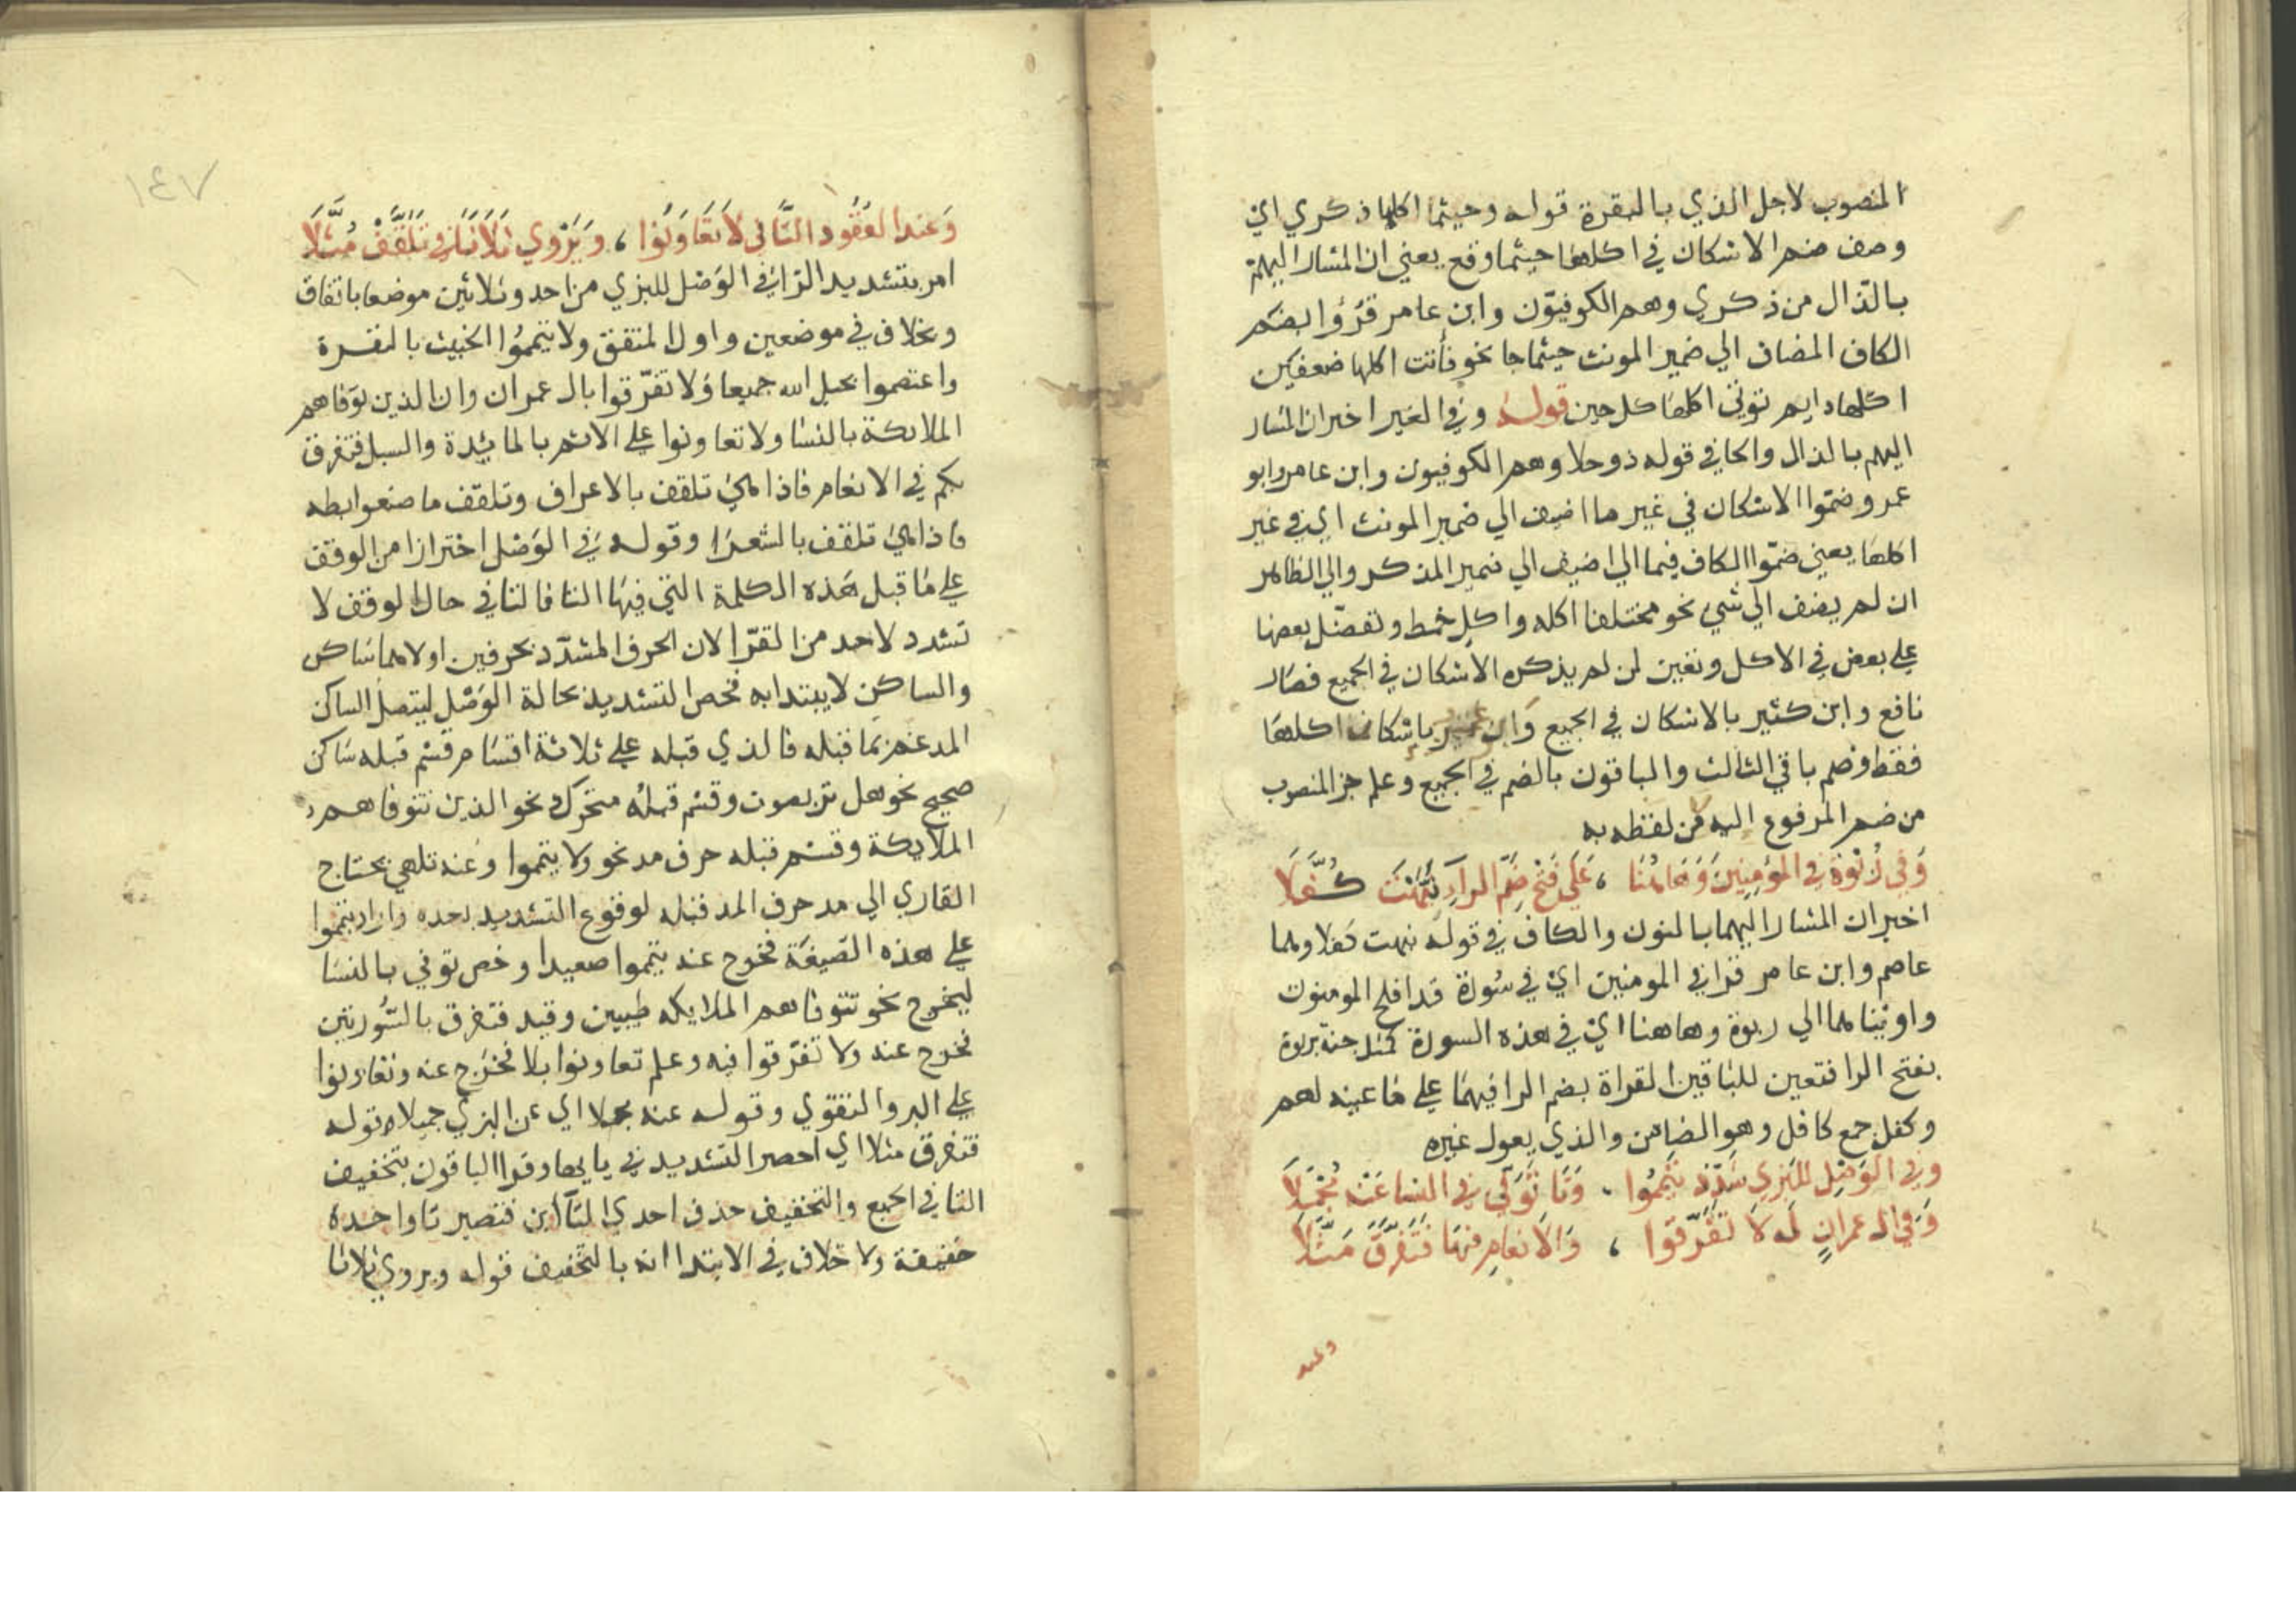 المنصوب لاجل الذي بالبقرة قوله وحيثما اكلها ذكري اي
وصف ضم الاسكان في اكلها حيثما وقع يعني ان المشار اليهم
بالذال من ذكري وهم الكوفيّون وابن عامر قرؤا بضم
الكاف المضاف الي ضمير المونث حيثما جا نحو فأتت اكلها ضعفين
اكلها دايم توتي اكلها كل حين قوله وفي الغير اخبر ان المشار
اليهم بالذال والحا في قوله ذو حلا وهم الكوفيون وابن عامر وابو
عمرو ضمّوا الاسكان في غير ما اضيف الي ضمير المونث اي في غير
اكلها يعني ضمّوا الكاف فيما الي اضيف الي ضمير المذكر والي الظاهر
ان لم يضف الي شي نحو مختلفا اكله واكل خمط ونفضّل بعضها
علي بعض في الاكل وتعين لمن لم يذكره الاسكان في الجميع فصار
نافع وابن كثير بالاسكان في الجميع وابن باسكان اكلها
فقط وضم باقي الثالث والباقون بالضم في الجميع وعلم جر المنصوب
من ضم المرفوع اليه من لفظه به
وَفي رُبْوَة في المؤمِنِينَ وَهَاهُنَا ، عَلَي فَتْحِ ضَمِّ الرآءِ نَبَّهْتَ كُفَّلَا
اخبر ان المشار اليهما بالنون والكاف في قوله نبهت كفلا وهما
عاصم وابن عامر قرا في المومنين اي في سُورة قد افلح المومنون
واويناهما الي ربوة وهاهنا اي في هذه السورة كمثل جنة بربوة
بفتح الرا فتعين للباقين القراة بضم الرا فيهما علي ما عينه لهم
وكفل جمع كافل وهو الضامن والذي يعول غيره
وفي الوَصْلِ للبَزي شَدِّدْ تَيَمَّمُوا . وَتَا تَوَفّي في النسا عَنْهُ مُجْمِلَا
وَفي ال عمرانٍ لَه لَا تَفَرَّقُوا ، وَالَانعامِ فيها فَتَفَرَّقَ مُثِّلَا
وعند
١٤٧
وَعندَ العُقُودِ التَّا في لَا تَعَاوَنُوا ، وَيَرْوي ثَلَاثَا في تَلَقَّفُ مُثَّلَا
امر بتشديد التا في الوَصْل للبزي من احد وثلاثين موضعا باتفاق
وبخلاف في موضعين واول المتفق ولا تيمموُا الخبيث بالبقرة
واعتصموا بحبل الله جميعا وَلا تفرّقوا بال عمران وان الذين توَفاهم
الملايكة بالنسا ولا تعاونوا علي الاثم بالمائدة والسبل فتفرق
بكم في الانعام فاذا هي تلقف بالاعراف وتلقف ما صنعوا بطه
فاذا هي تلقف بالشعرَا وقوله في الوَصْل احترازا من الوقف
علي ما قبل هَذه الكلمة التي فيها التا فالتا في حال الوقف لا
تشدد لاحد من القرّا لان الحرف المشدّد بحرفين اولاهما سَاكن
والساكن لا يبتدا به فخص التشديد بحالة الوَصْل ليتصل الساكن
المدغم بمَا قبله فالذي قبله علي ثلاثة اقسَام قسْم قبله سَاكن
صحيح نحو هل تربصون وقسْم قبله متحرك نحو الذين تتوفاهم
الملايكة وقسْم قبله حرف مد نحو ولا تيمموا وعنه تلهي يحتاج
القاري الي مد حرف المد قبله لوقوع التشديد بعده واراد تيمموا
علي هذه الصّيغَة فخرج عنه فتيمموا صعيدا وخص توفي بالنسَا
ليخرج نحو تتوفاهم الملايكه طيبين وقيد فتفرق بالسُّورتين
فخرج عنه ولا تفرّقوا فيه وعلم تعاونوا بلا فخرَج عنه وتعاونوا
علي البر والتقوي وقوله عنه مجملا اي عن البزي جميلا وقوله
فتفرق مثلا اي احصر التشديد في يا يها وقرا الباقون بتخفيف
التا في الجميع والتخفيف حذف احدي التآاين فتصير تا واحدة
خفيفة ولا خلاف في الابتدا انه بالتخفيف قوله ويروي ثلاثا